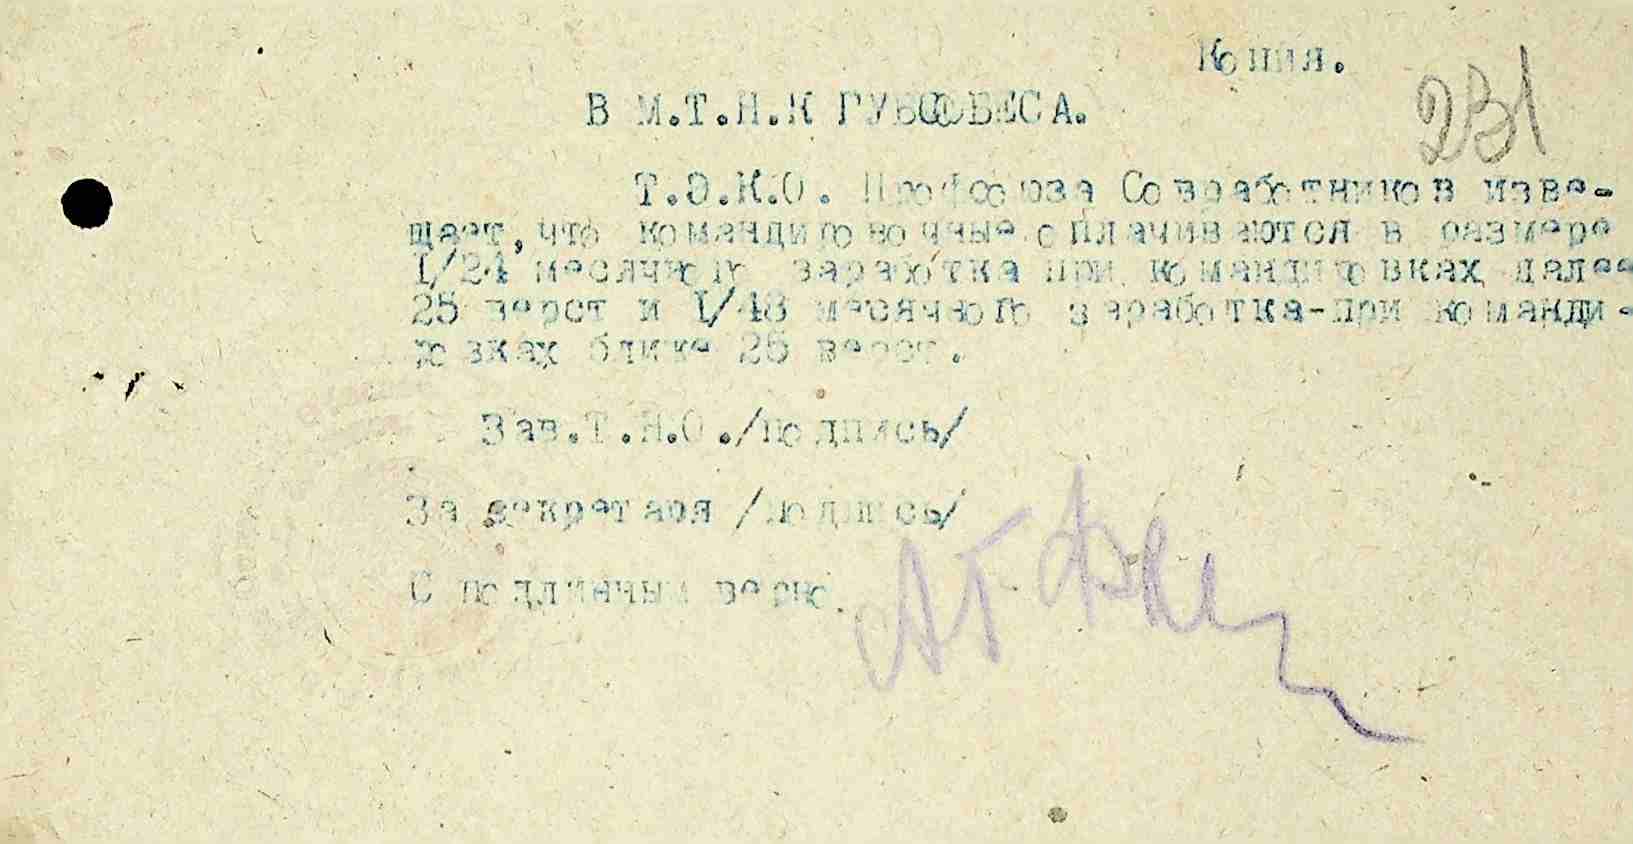 Копия.
231
В М.Т.Н.К ГУБСОБЕСА.
Т.Э.К.О. Профсоюза Совработников изве-
щает, что командировочные оплачиваются в размере
I/24 месячного заработка при командировках далее
25 верст и I/48 месячного заработка-при команди-
ровках ближе 25 верст.
Зав.Т.Н.О./подпись/
За секретаря /подпись/
С подлинным верно.